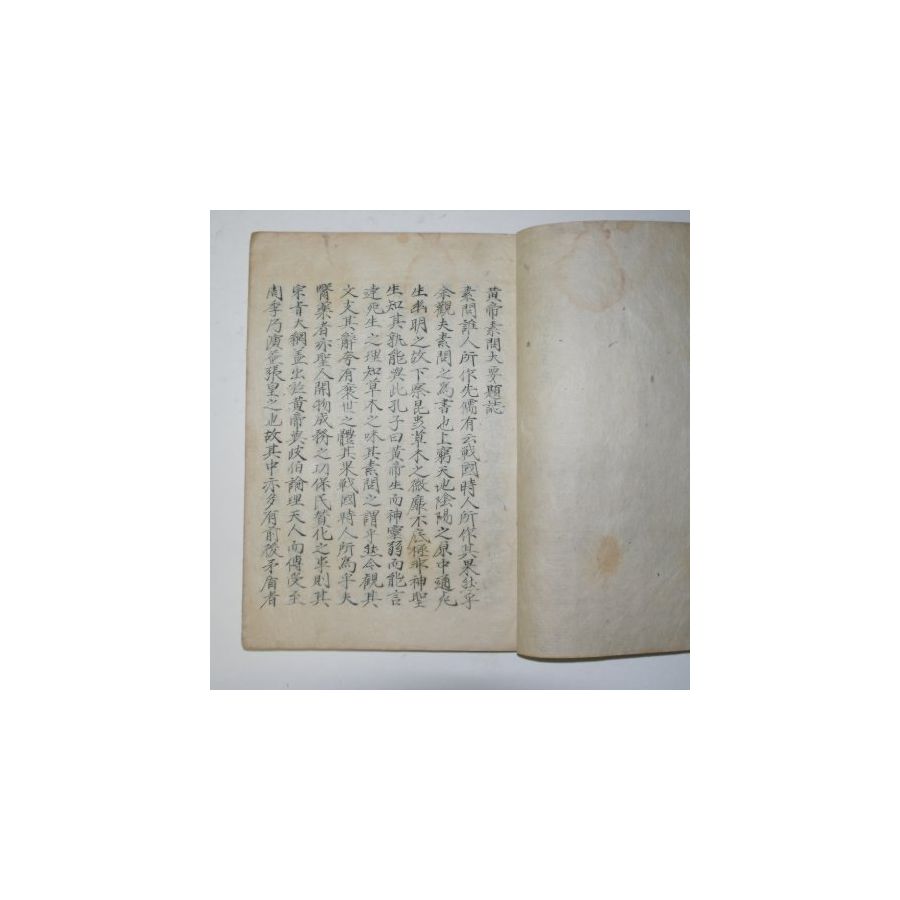 黃帝素問大要題誌
素問誰人所作先儒有云戰國時人所作其果然乎
余觀夫素問之爲書也上窮天地陰陽之原中通死
生幽明之故下察昆虫草木之微靡不底極非神聖
生知其孰能與此孔子曰黃帝生而神靈弱而能言
達死生之理知草木之味其素問之謂乎然今觀其
文支其辭夸有衰世之體其果戰國時人所爲乎夫
醫藥者亦聖人開物成務之功保民贊化之事則其
宗旨大綱盖出於黃帝與岐伯論理天人而傳受至
周季乃演益張皇之也故其中亦多有前後矛盾者